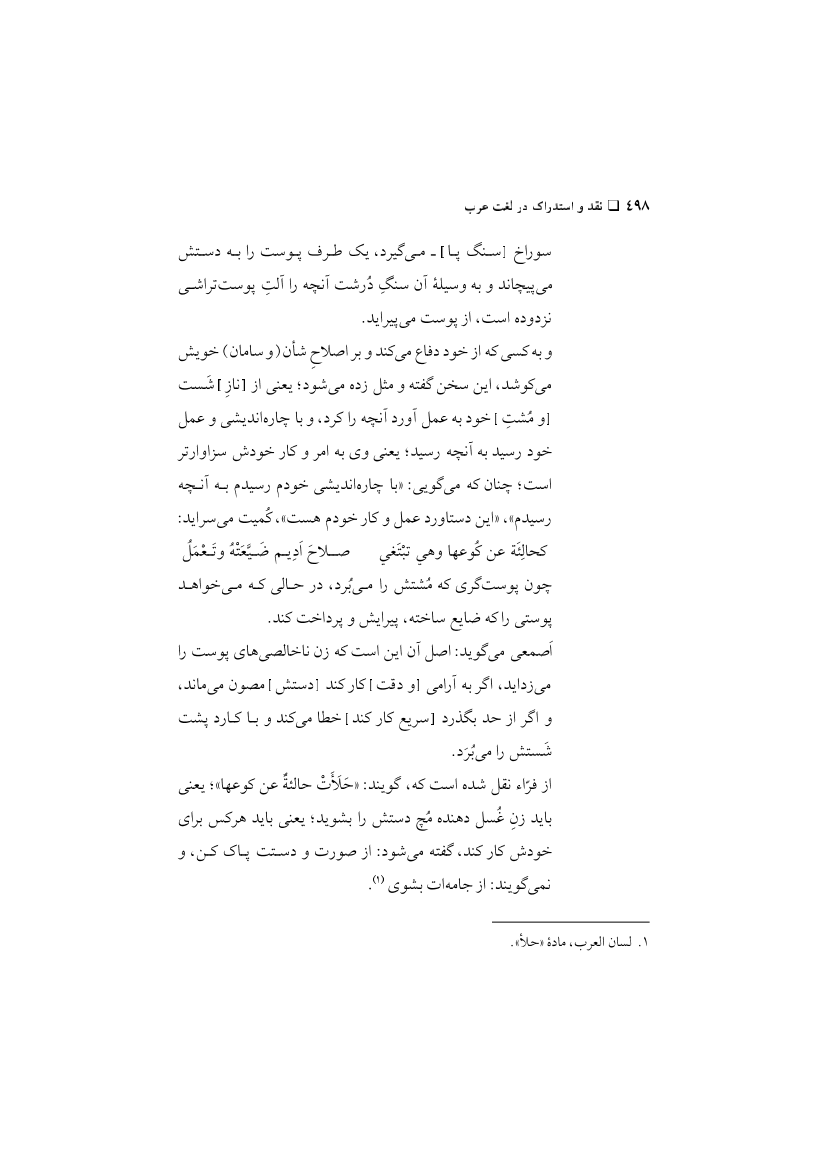 ٤٩٨ ❏ نقد و استدراک در لغت عرب
سوراخ [سنگ پا] ـ می‌گیرد، یک طرف پوست را به دستش
می‌پیچاند و به وسیلهٔ آن سنگِ دُرشت آنچه را آلتِ پوست‌تراشی
نزدوده است، از پوست می‌پیراید.
و به کسی که از خود دفاع می‌کند و بر اصلاحِ شأن (و سامان) خویش
می‌کوشد، این سخن گفته و مثل زده می‌شود؛ یعنی از [نازِ] شَست
[و مُشتِ] خود به عمل آورد آنچه را کرد، و با چاره‌اندیشی و عمل
خود رسید به آنچه رسید؛ یعنی وی به امر و کار خودش سزاوارتر
است؛ چنان که می‌گویی: «با چاره‌اندیشی خودم رسیدم به آنچه
رسیدم»، «این دستاورد عمل و کار خودم هست»، کُمیت می‌سراید:
کحالِئَة عن کُوعها وهي تبْتَغي صلاحَ اَدِیم ضَیَّعَتْهُ وتَعْمَلُ
چون پوست‌گری که مُشتش را می‌بُرد، در حالی که می‌خواهد
پوستی را که ضایع ساخته، پیرایش و پرداخت کند.
اَصمعی می‌گوید: اصل آن این است که زن ناخالصی‌های پوست را
می‌زداید، اگر به آرامی [و دقت] کار کند [دستش] مصون می‌ماند،
و اگر از حد بگذرد [سریع کار کند] خطا می‌کند و با کارد پشت
شَستش را می‌بُرَد.
از فرّاء نقل شده است که، گویند: «حَلَأَتْ حالئةٌ عن کوعها»؛ یعنی
باید زنِ غُسل دهنده مُچِ دستش را بشوید؛ یعنی باید هرکس برای
خودش کار کند، گفته می‌شود: از صورت و دستت پاک کن، و
نمی‌گویند: از جامه‌ات بشوی (۱).
۱. لسان العرب، مادهٔ «حلأ».